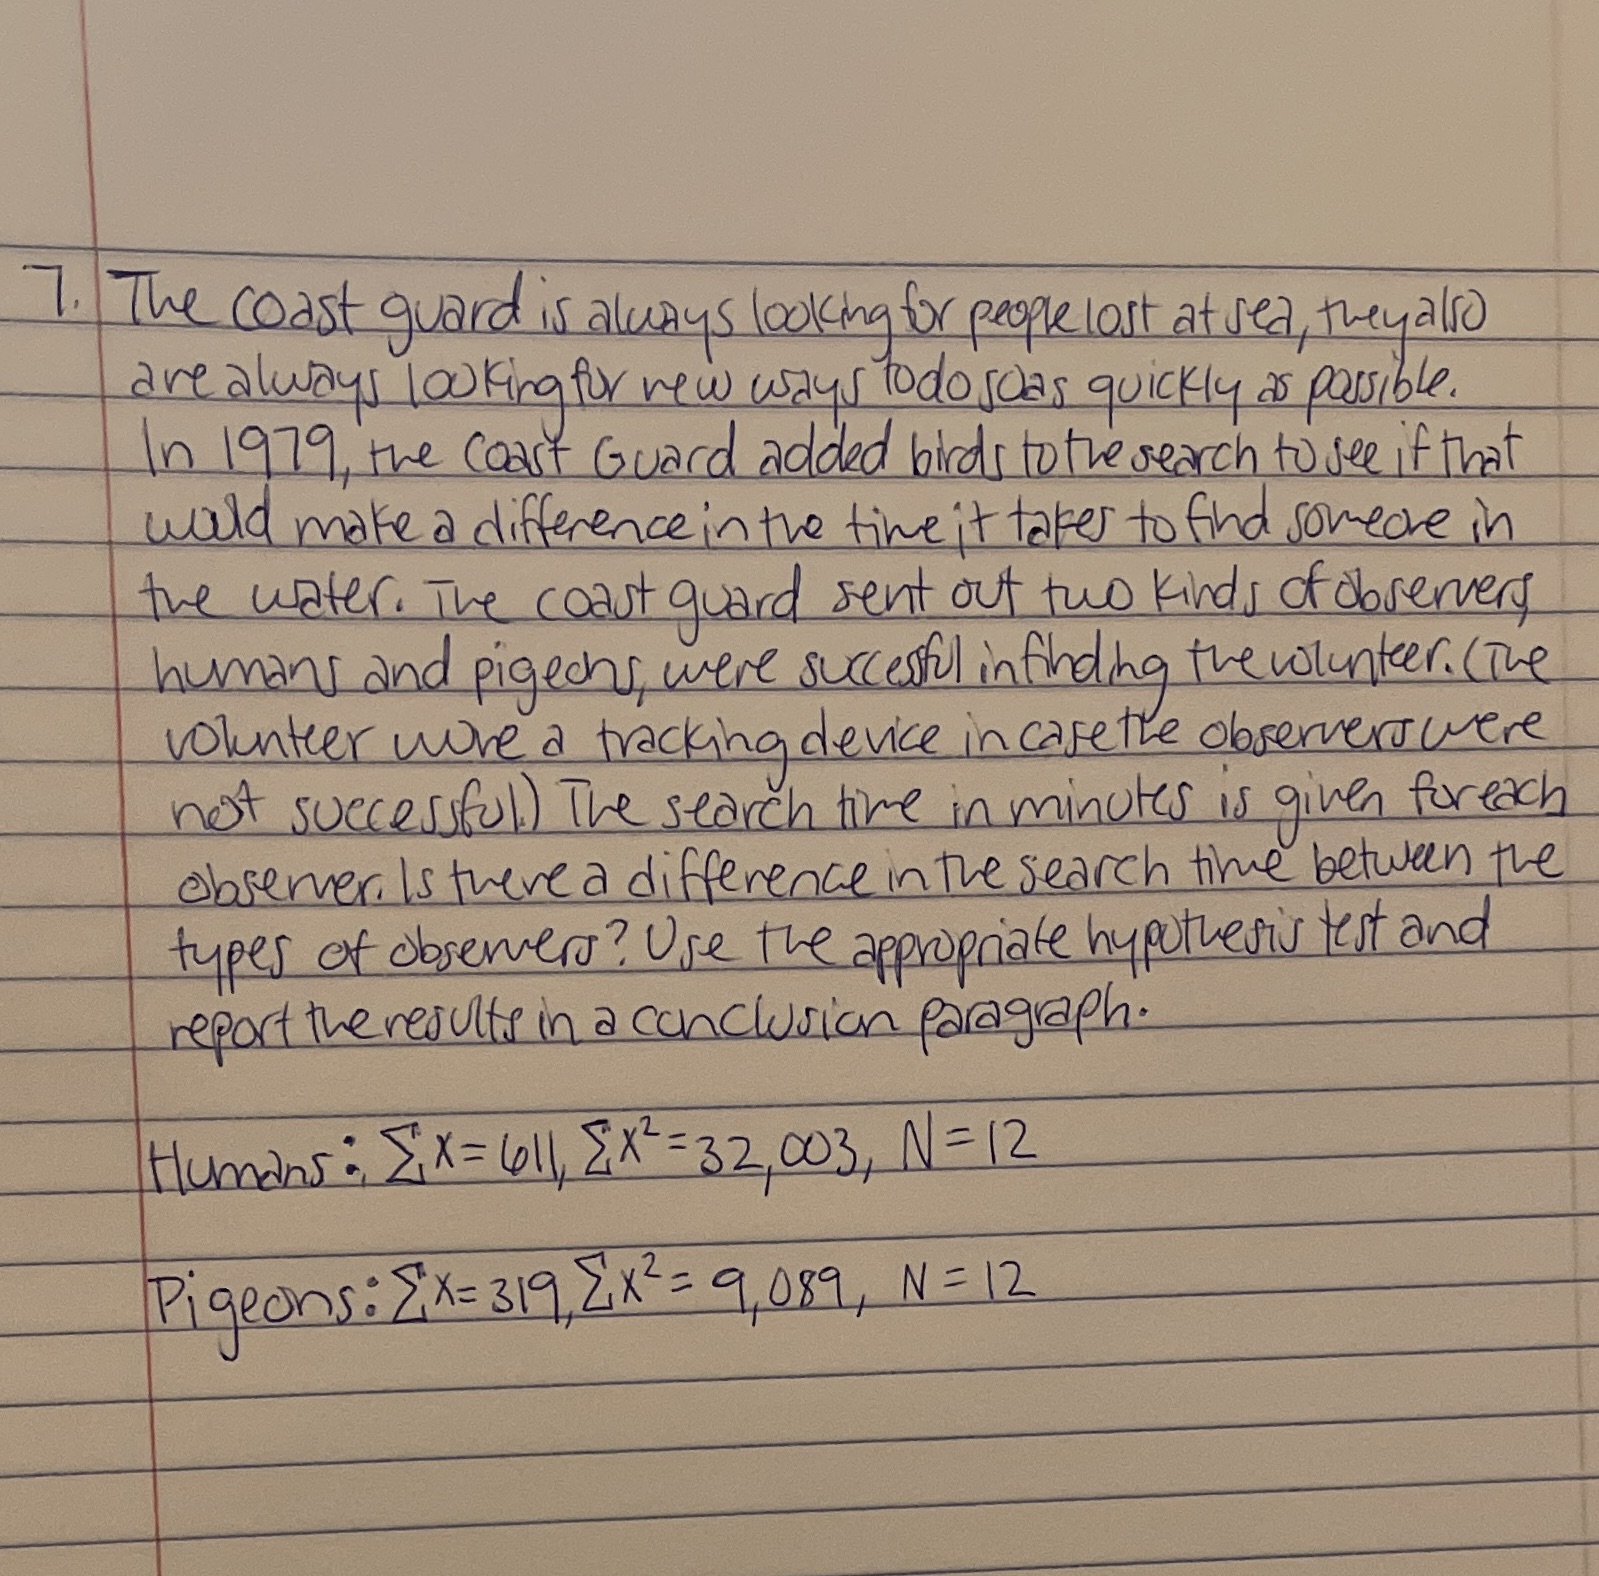 7. The coast guard is always looking for people lost at sea, they also
are always looking for new ways to do so as quickly as possible.
In 1979, the Coast Guard added birds to the search to see if that
would make a difference in the time it takes to find someone in
the water. The coast guard sent out two kinds of observers,
humans and pigeons, were successful in finding the volunteer. (The
volunteer wore a tracking device in case the observers were
not successful.) The search time in minutes is given for each
observer. Is there a difference in the search time between the
types of observers? Use the appropriate hypothesis test and
report the results in a conclusion paragraph.
Humans: ΣX=611, ΣX²=32,003, N=12
Pigeons: ΣX=319, ΣX²= 9,089, N=12